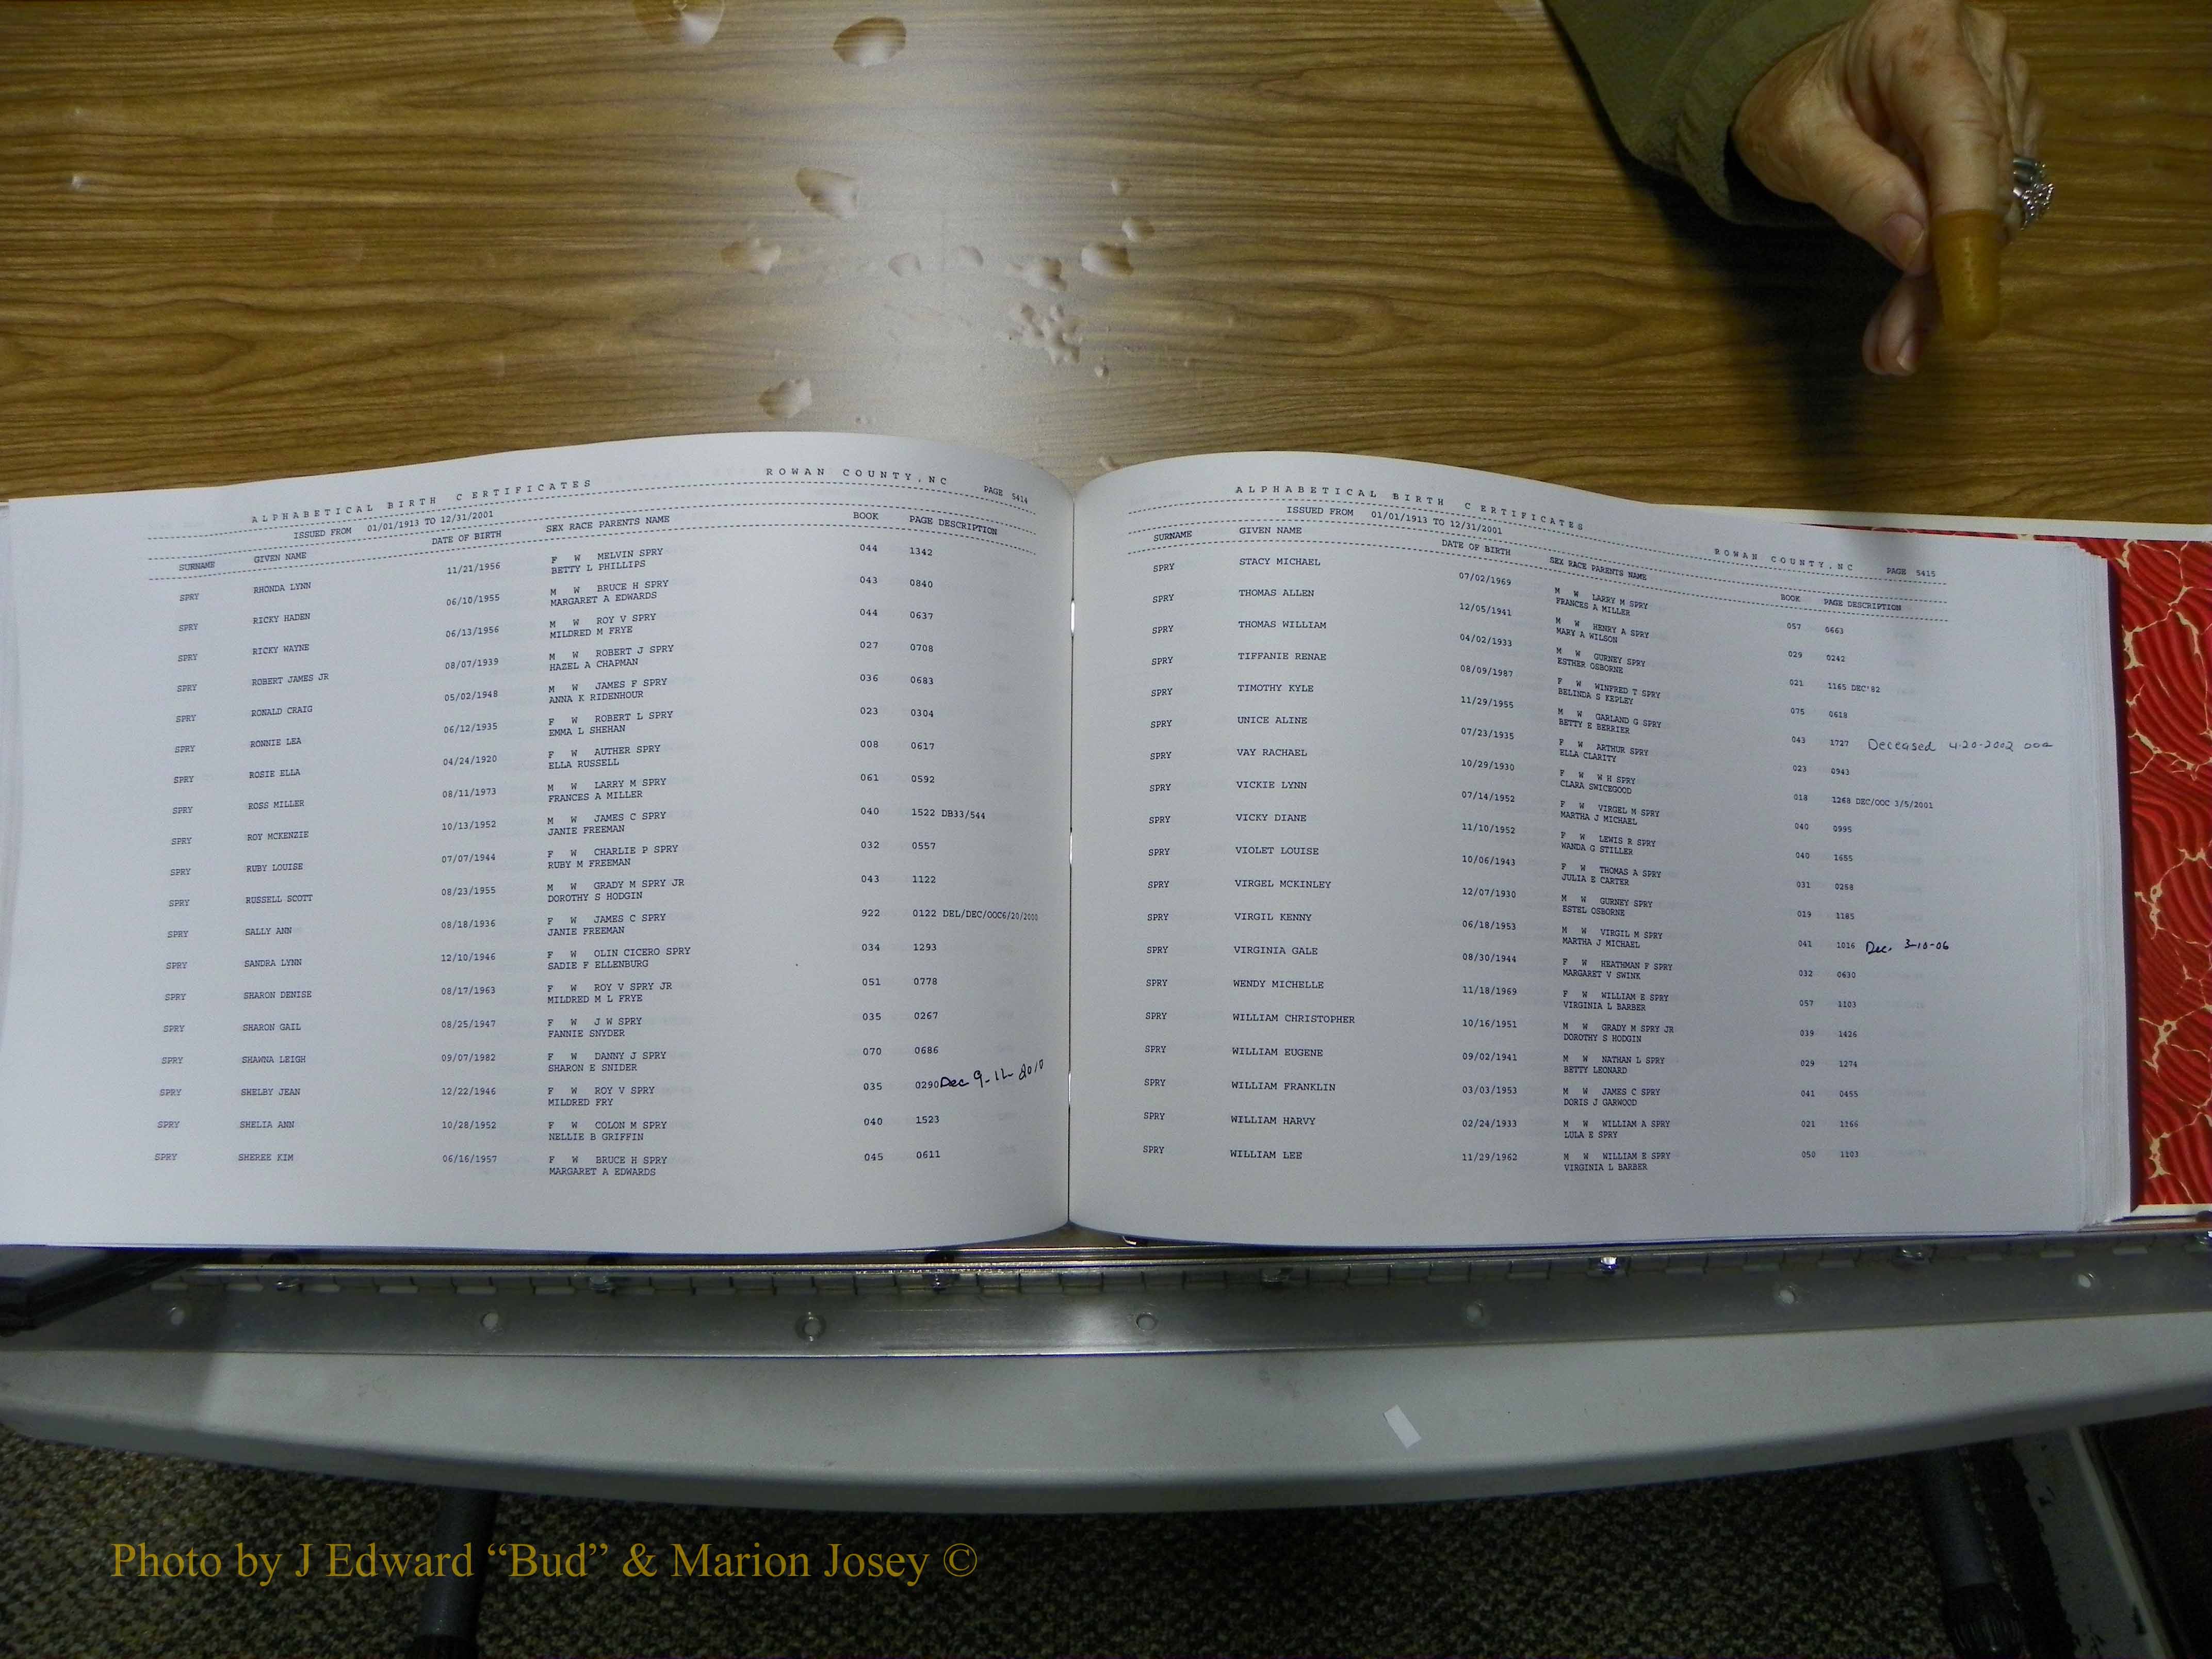 ALPHABETICAL BIRTH CERTIFICATES ROWAN COUNTY, NC PAGE 5414
ISSUED FROM 01/01/1913 TO 12/31/2001
SURNAME GIVEN NAME DATE OF BIRTH SEX RACE PARENTS NAME BOOK PAGE DESCRIPTION
SPRY RHONDA LYNN 11/21/1956 F W MELVIN SPRY 044 1342
BETTY L PHILLIPS
SPRY RICKY HADEN 06/10/1955 M W BRUCE H SPRY 043 0840
MARGARET A EDWARDS
SPRY RICKY WAYNE 06/13/1956 M W ROY V SPRY 044 0637
MILDRED M FRYE
SPRY ROBERT JAMES JR 08/07/1939 M W ROBERT J SPRY 027 0708
HAZEL A CHAPMAN
SPRY RONALD CRAIG 05/02/1948 M W JAMES F SPRY 036 0683
ANNA K RIDENHOUR
SPRY RONNIE LEA 06/12/1935 F W ROBERT L SPRY 023 0304
EMMA L SHEHAN
SPRY ROSIE ELLA 04/24/1920 F W AUTHER SPRY 008 0617
ELLA RUSSELL
SPRY ROSS MILLER 08/11/1973 M W LARRY M SPRY 061 0592
FRANCES A MILLER
SPRY ROY MCKENZIE 10/13/1952 M W JAMES C SPRY 040 1522 DB33/544
JANIE FREEMAN
SPRY RUBY LOUISE 07/07/1944 F W CHARLIE P SPRY 032 0557
RUBY M FREEMAN
SPRY RUSSELL SCOTT 08/23/1955 M W GRADY M SPRY JR 043 1122
DOROTHY S HODGIN
SPRY SALLY ANN 08/18/1936 F W JAMES C SPRY 922 0122 DEL/DEC/OOC6/20/2000
JANIE FREEMAN
SPRY SANDRA LYNN 12/10/1946 F W OLIN CICERO SPRY 034 1293
SADIE F ELLENBURG
SPRY SHARON DENISE 08/17/1963 F W ROY V SPRY JR 051 0778
MILDRED M L FRYE
SPRY SHARON GAIL 08/25/1947 F W J W SPRY 035 0267
FANNIE SNYDER
SPRY SHAWNA LEIGH 09/07/1982 F W DANNY J SPRY 070 0686
SHARON E SNIDER
SPRY SHELBY JEAN 12/22/1946 F W ROY V SPRY 035 0290 Dec 9-12-2010
MILDRED FRY
SPRY SHELIA ANN 10/28/1952 F W COLON M SPRY 040 1523
NELLIE B GRIFFIN
SPRY SHEREE KIM 06/16/1957 F W BRUCE H SPRY 045 0611
MARGARET A EDWARDS
ALPHABETICAL BIRTH CERTIFICATES ROWAN COUNTY, NC PAGE 5415
ISSUED FROM 01/01/1913 TO 12/31/2001
SURNAME GIVEN NAME DATE OF BIRTH SEX RACE PARENTS NAME BOOK PAGE DESCRIPTION
SPRY STACY MICHAEL 07/02/1969 M W LARRY M SPRY 057 0663
FRANCES A MILLER
SPRY THOMAS ALLEN 12/05/1941 M W HENRY A SPRY 029 0242
MARY A WILSON
SPRY THOMAS WILLIAM 04/02/1933 M W GURNEY SPRY 021 1165 DEC'82
ESTHER OSBORNE
SPRY TIFFANIE RENAE 08/09/1987 F W WINFRED T SPRY 075 0618
BELINDA S KEPLEY
SPRY TIMOTHY KYLE 11/29/1955 M W GARLAND G SPRY 043 1727 Deceased 4-20-2002 ooc
BETTY E BERRIER
SPRY UNICE ALINE 07/23/1935 F W ARTHUR SPRY 023 0943
ELLA CLARITY
SPRY VAY RACHAEL 10/29/1930 F W W H SPRY 018 1268 DEC/OOC 3/5/2001
CLARA SWICEGOOD
SPRY VICKIE LYNN 07/14/1952 F W VIRGEL M SPRY 040 0995
MARTHA J MICHAEL
SPRY VICKY DIANE 11/10/1952 F W LEWIS R SPRY 040 1655
WANDA G STILLER
SPRY VIOLET LOUISE 10/06/1943 F W THOMAS A SPRY 031 0258
JULIA E CARTER
SPRY VIRGEL MCKINLEY 12/07/1930 M W GURNEY SPRY 019 1185
ESTEL OSBORNE
SPRY VIRGIL KENNY 06/18/1953 M W VIRGIL M SPRY 041 1016 Dec. 3-10-06
MARTHA J MICHAEL
SPRY VIRGINIA GALE 08/30/1944 F W HEATHMAN F SPRY 032 0630
MARGARET V SWINK
SPRY WENDY MICHELLE 11/18/1969 F W WILLIAM E SPRY 057 1103
VIRGINIA L BARBER
SPRY WILLIAM CHRISTOPHER 10/16/1951 M W GRADY M SPRY JR 039 1426
DOROTHY S HODGIN
SPRY WILLIAM EUGENE 09/02/1941 M W NATHAN L SPRY 029 1274
BETTY LEONARD
SPRY WILLIAM FRANKLIN 03/03/1953 M W JAMES C SPRY 041 0455
DORIS J GARWOOD
SPRY WILLIAM HARVY 02/24/1933 M W WILLIAM A SPRY 021 1266
LULA E SPRY
SPRY WILLIAM LEE 11/29/1962 M W WILLIAM E SPRY 050 1103
VIRGINIA L BARBER
Photo by J Edward “Bud” & Marion Josey ©